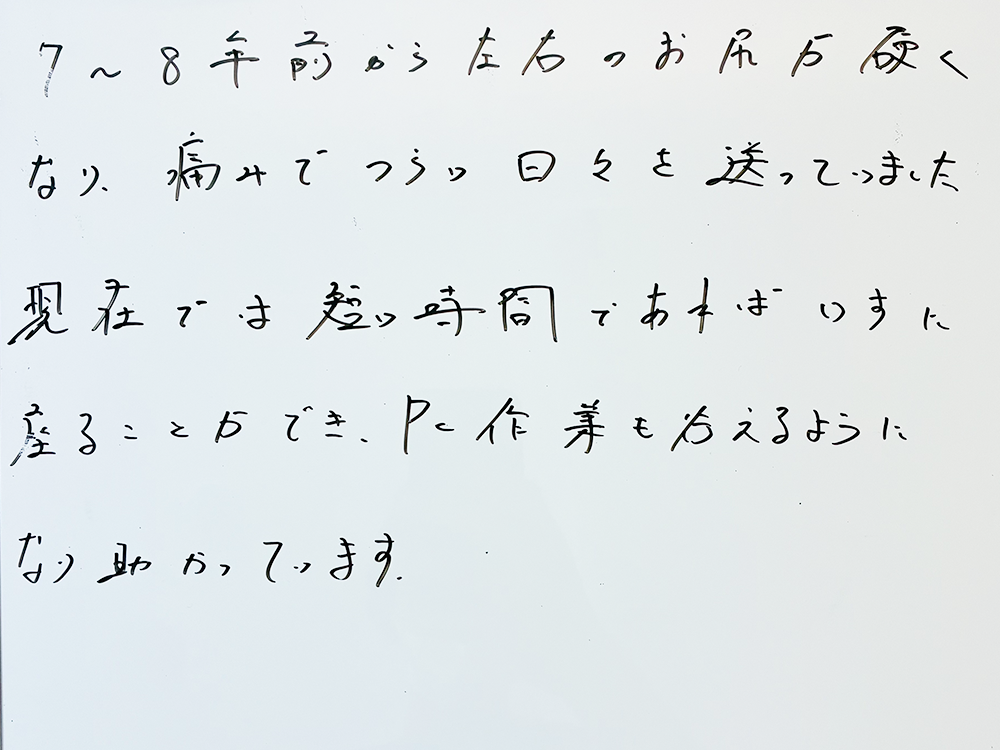 7～8年前から左右のお尻が硬く
なり、痛みでつらい日々を送っていました
現在では短い時間であればいすに
座ることができ、PC作業も行えるように
なり助かっています.